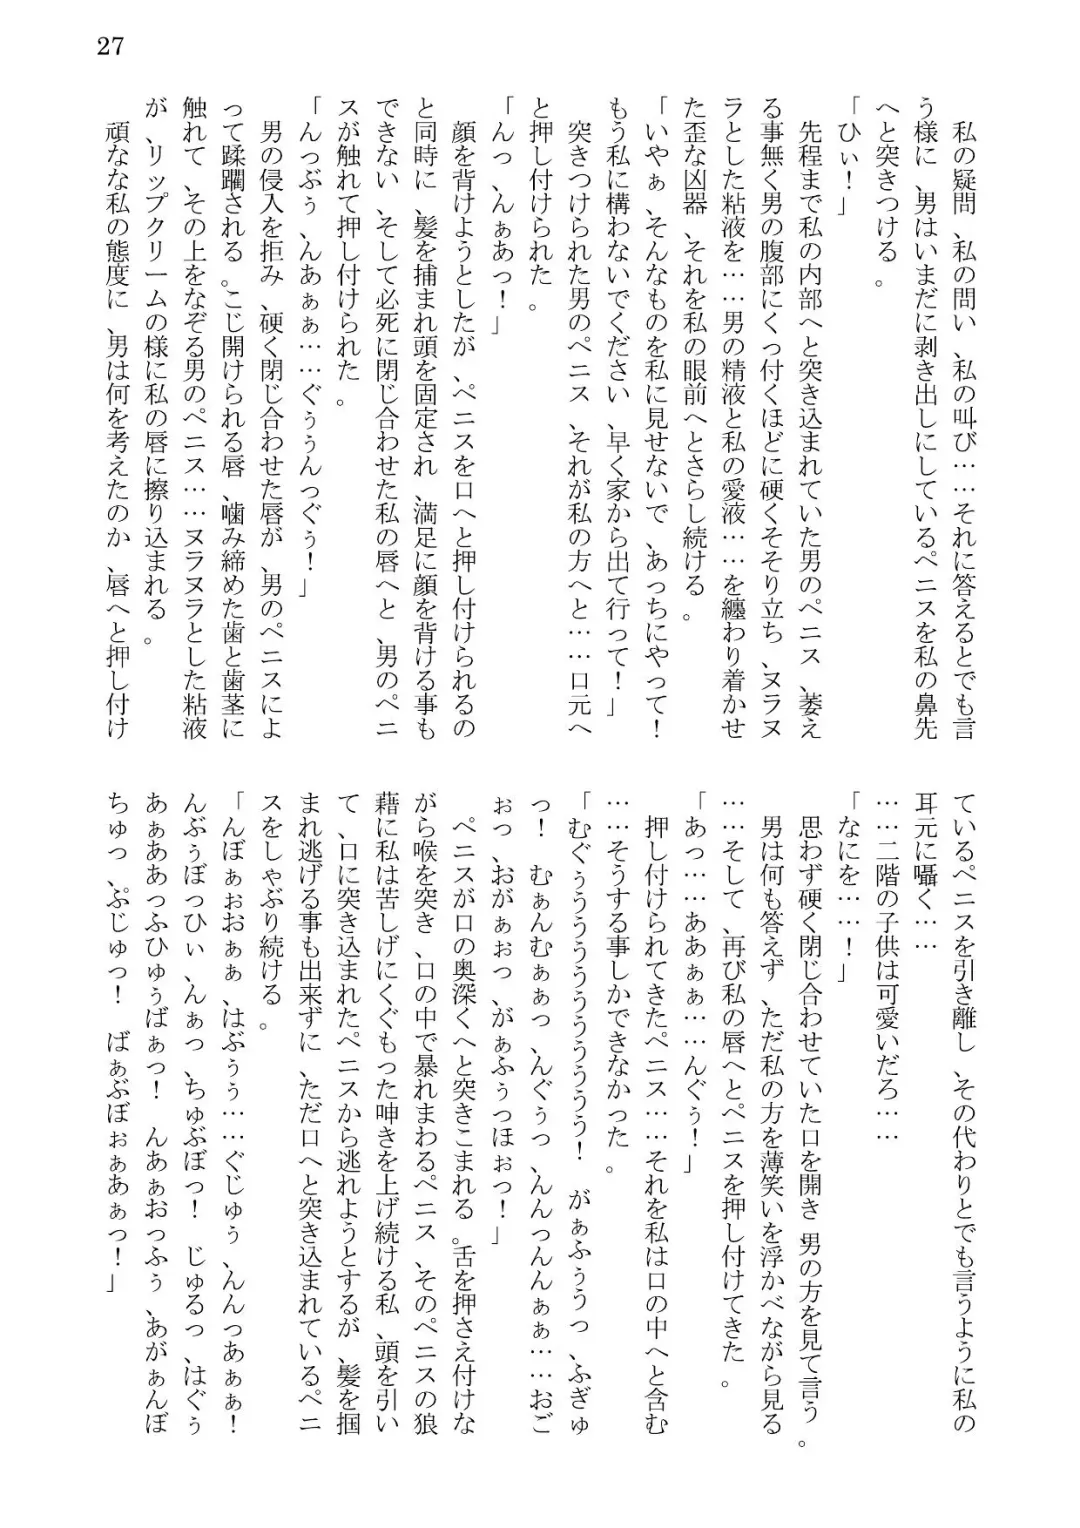 27
　私の疑問、私の問い、私の叫び……それに答えるとでも言
う様に、男はいまだに剥き出しにしているペニスを私の鼻先
へと突きつける。
「ひぃ！」
　先程まで私の内部へと突き込まれていた男のペニス、萎え
る事無く男の腹部にくっ付くほどに硬くそそり立ち、ヌラヌ
ラとした粘液を……男の精液と私の愛液……を纏わり着かせ
た歪な凶器、それを私の眼前へとさらし続ける。
「いやぁ、そんなものを私に見せないで、あっちにやって！
もう私に構わないでください、早く家から出て行って！」
　突きつけられた男のペニス、それが私の方へと……口元へ
と押し付けられた。
「んっ、んぁあっ！」
　顔を背けようとしたが、ペニスを口へと押し付けられるの
と同時に、髪を捕まれ頭を固定され、満足に顔を背ける事も
できない、そして必死に閉じ合わせた私の唇へと、男のペニ
スが触れて押し付けられた。
「んっぶぅ、んあぁぁ……ぐぅぅんっぐぅ！」
　男の侵入を拒み、硬く閉じ合わせた唇が、男のペニスによ
って蹂躙される。こじ開けられる唇、噛み締めた歯と歯茎に
触れて、その上をなぞる男のペニス……ヌラヌラとした粘液
が、リップクリームの様に私の唇に擦り込まれる。
　頑なな私の態度に、男は何を考えたのか、唇へと押し付け
ているペニスを引き離し、その代わりとでも言うように私の
耳元に囁く……
……二階の子供は可愛いだろ……
「なにを……！」
　思わず硬く閉じ合わせていた口を開き、男の方を見て言う。
　男は何も答えず、ただ私の方を薄笑いを浮かべながら見る
……そして、再び私の唇へとペニスを押し付けてきた。
「あっ……ああぁぁ……んぐぅ！」
　押し付けられてきたペニス……それを私は口の中へと含む
……そうする事しかできなかった。
「むぐぅうううううううううう！　がぁふぅうっ、ふぎゅ
っ！　むぁんむぁぁっ、んぐぅっ、んんっんんぁぁ……おご
ぉっ、おがぁぉっ、がぁふぅっほぉっ！」
　ペニスが口の奥深くへと突きこまれる。舌を押さえ付けな
がら喉を突き、口の中で暴れまわるペニス、そのペニスの狼
藉に私は苦しげにくぐもった呻きを上げ続ける私、頭を引い
て、口に突き込まれたペニスから逃れようとするが、髪を掴
まれ逃げる事も出来ずに、ただ口へと突き込まれているペニ
スをしゃぶり続ける。
「んぼぁぉおぁぁ、はぶぅぅ……ぐじゅぅ、んんっあぁぁ！
んぶぅぼっひぃ、んぁっ、ちゅぶぼっ！　じゅるっ、はぐぅ
あぁああっふひゅぅばぁっ！　んあぁおっふぅ、あがぁんぼ
ちゅっ、ぷじゅっ！　ばぁぶぼぉぁあぁっ！」